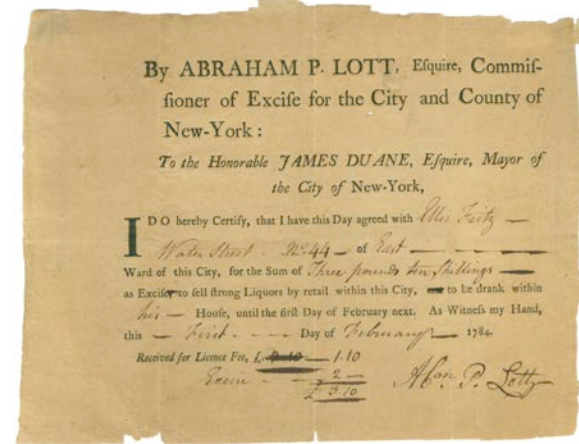 By ABRAHAM P. LOTT, Eſquire, Commiſ-
ſioner of Exciſe for the City and County of
New-York:
To the Honorable JAMES DUANE, Eſquire, Mayor of
the City of New-York,
I DO hereby Certify, that I have this Day agreed with Ellis Fritz —
Water Street - No. 44 — of East — — —
Ward of this City, for the Sum of Three pounds ten Shillings —
as Exciſe to ſell ſtrong Liquors by retail within this City, to be drank within
his — Houſe, until the firſt Day of February next. As Witneſs my Hand,
this — First - - - Day of February — 1784.
Received for Licence Fee, £ — 1.10
Excise - - 2 —
£ 3.10
Abm. P. Lott